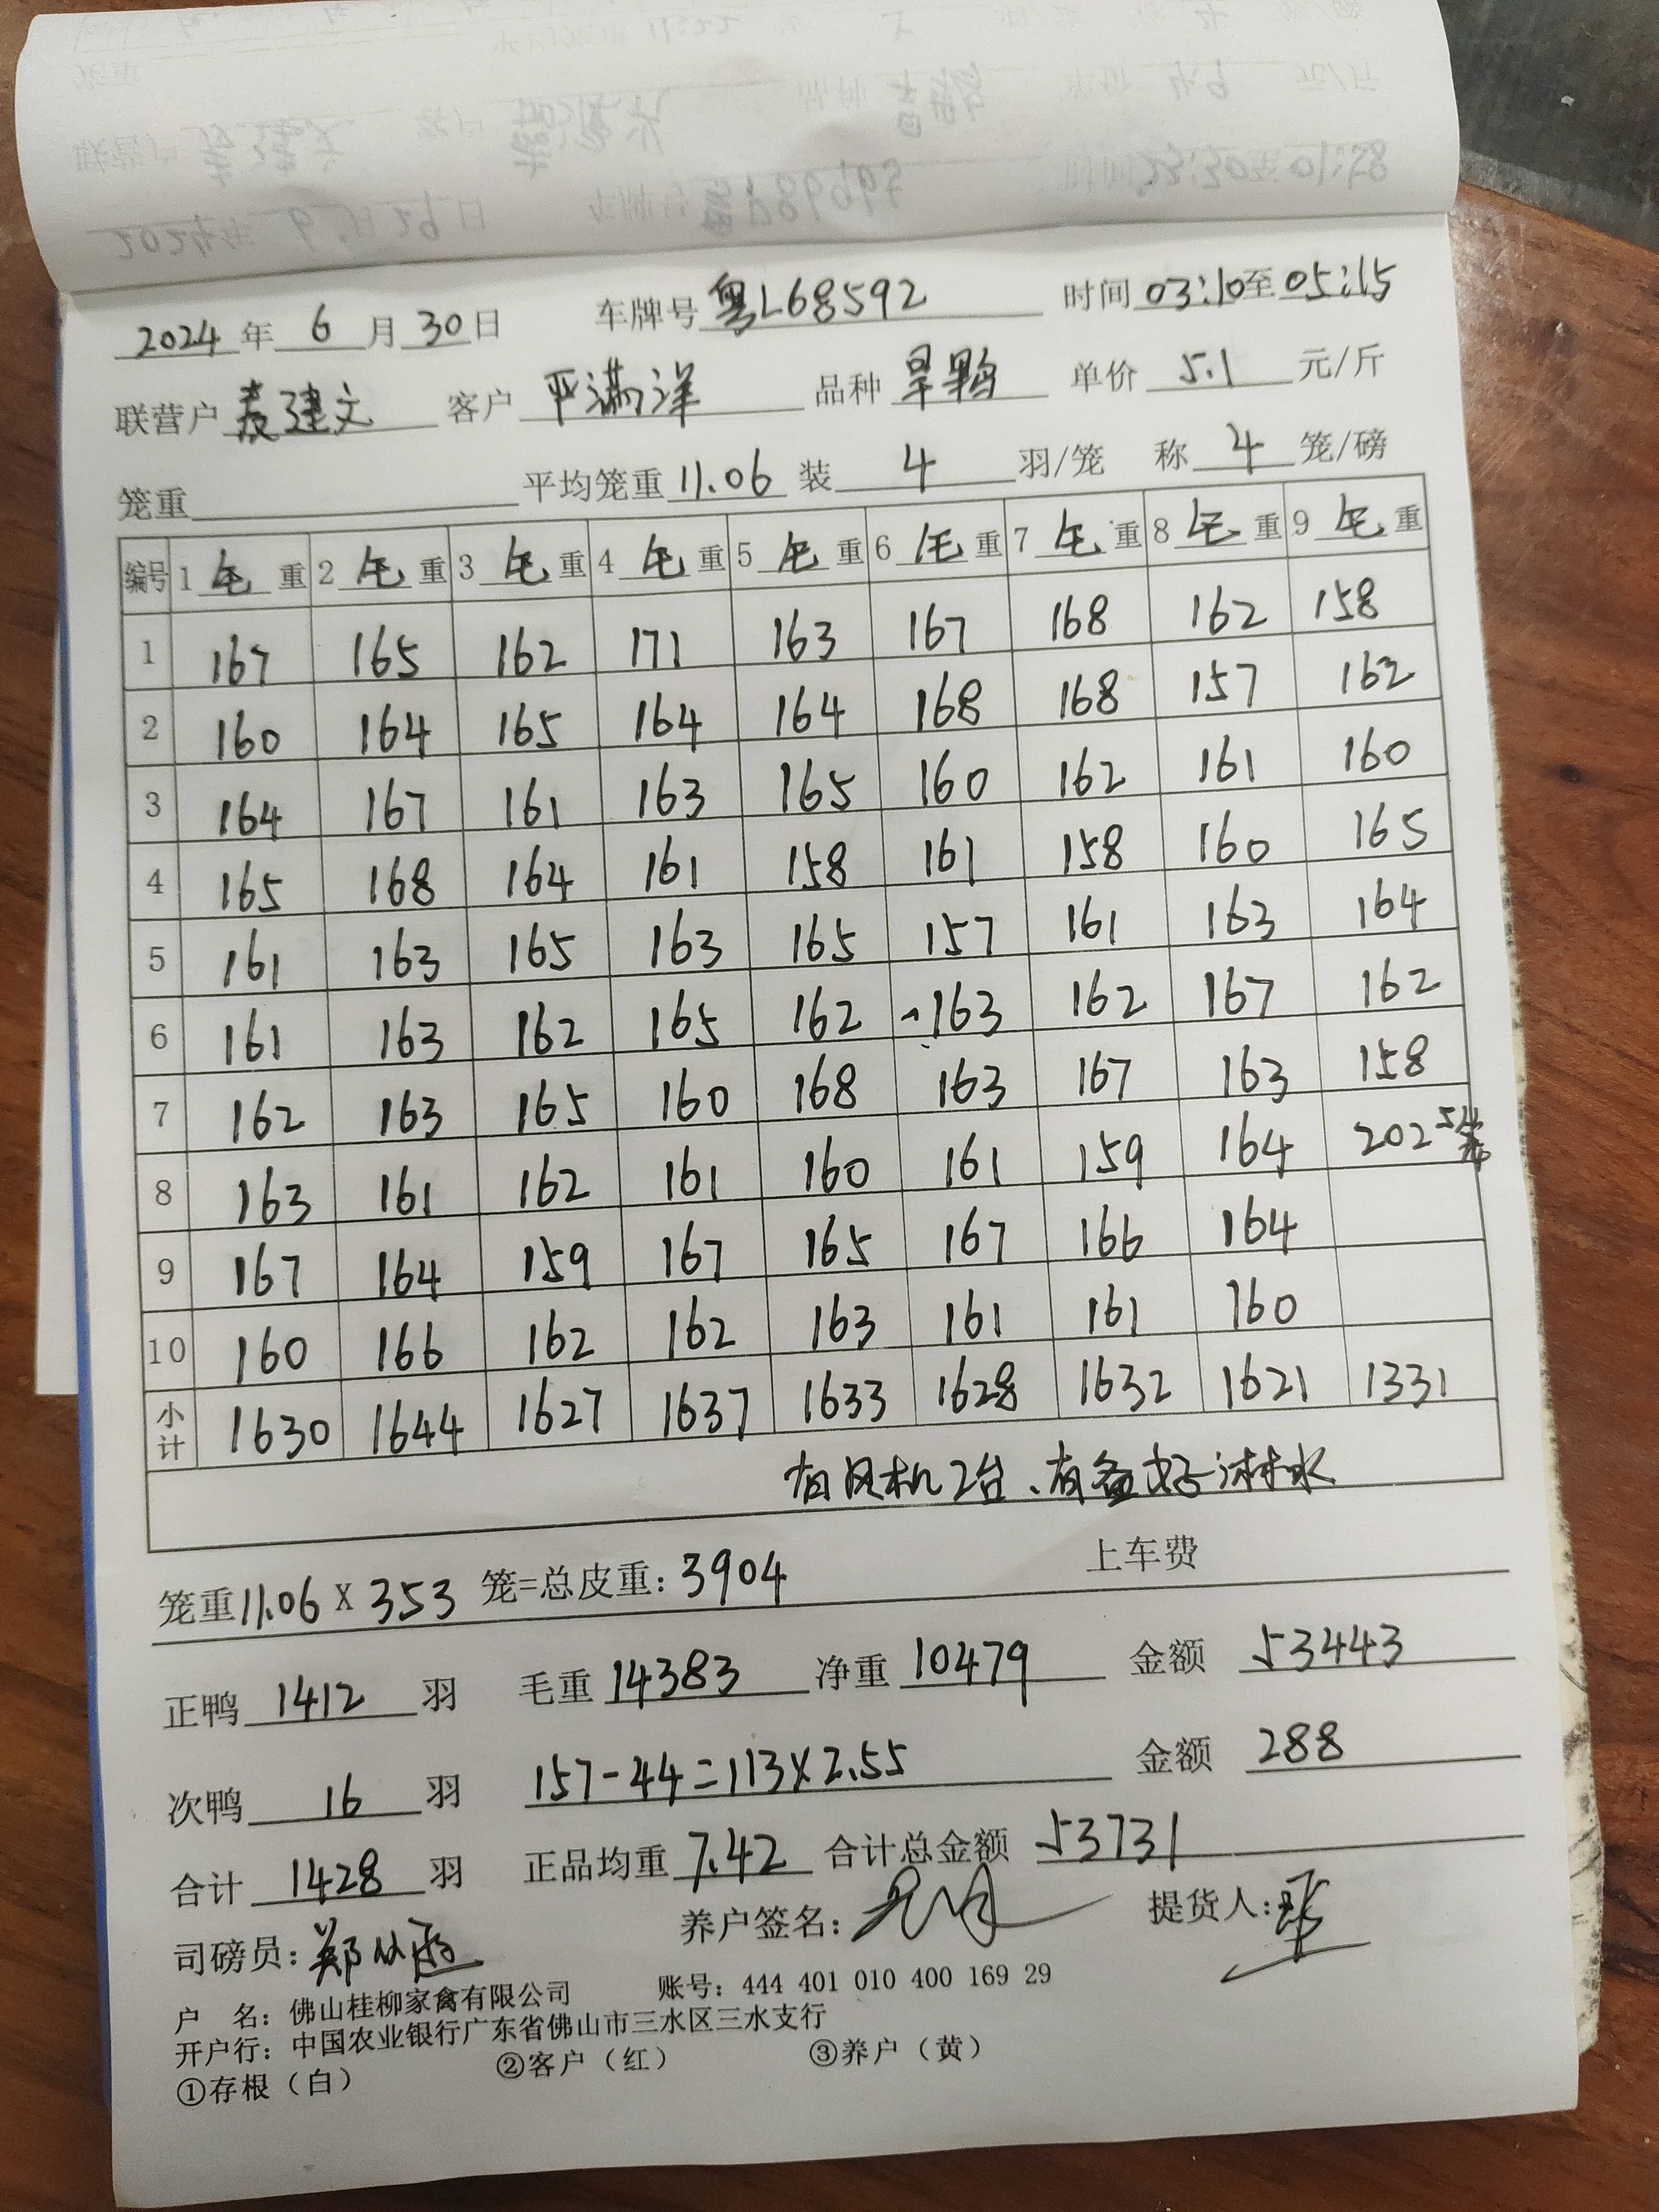 2024年 6 月 30 日 车牌号 粤L68592 时间 03:10至 05:15
联营户 建文 客户 严满洋 品种 旱鸭 单价 5.1 元/斤
笼重 平均笼重 11.06 装 4 羽/笼 称 4 笼/磅
编号 1 毛 重 2 毛 重 3 毛 重 4 毛 重 5 毛 重 6 毛 重 7 毛 重 8 毛 重 9 毛 重
1 167 165 162 171 163 167 168 162 158
2 160 164 165 164 164 168 168 157 162
3 164 167 161 163 165 160 162 161 160
4 165 168 164 161 158 161 158 160 165
5 161 163 165 163 165 157 161 163 164
6 161 163 162 165 162 163 162 167 162
7 162 163 165 160 168 163 167 163 158
8 163 161 162 161 160 161 159 164 202 5笼
9 167 164 159 167 165 167 166 164
10 160 166 162 162 163 161 161 160
小计 1630 1644 1627 1637 1633 1628 1632 1621 1331
有风机2台、有备好淋水
笼重 11.06 X 353 笼=总皮重: 3904 上车费
正鸭 1412 羽 毛重 14383 净重 10479 金额 53443
次鸭 16 羽 157-44=113X2.55 金额 288
合计 1428 羽 正品均重 7.42 合计总金额 53731
司磅员: 郑 养户签名: 提货人:
户 名: 佛山桂柳家禽有限公司 账号: 444 401 010 400 169 29
开户行: 中国农业银行广东省佛山市三水区三水支行
①存根（白） ②客户（红） ③养户（黄）